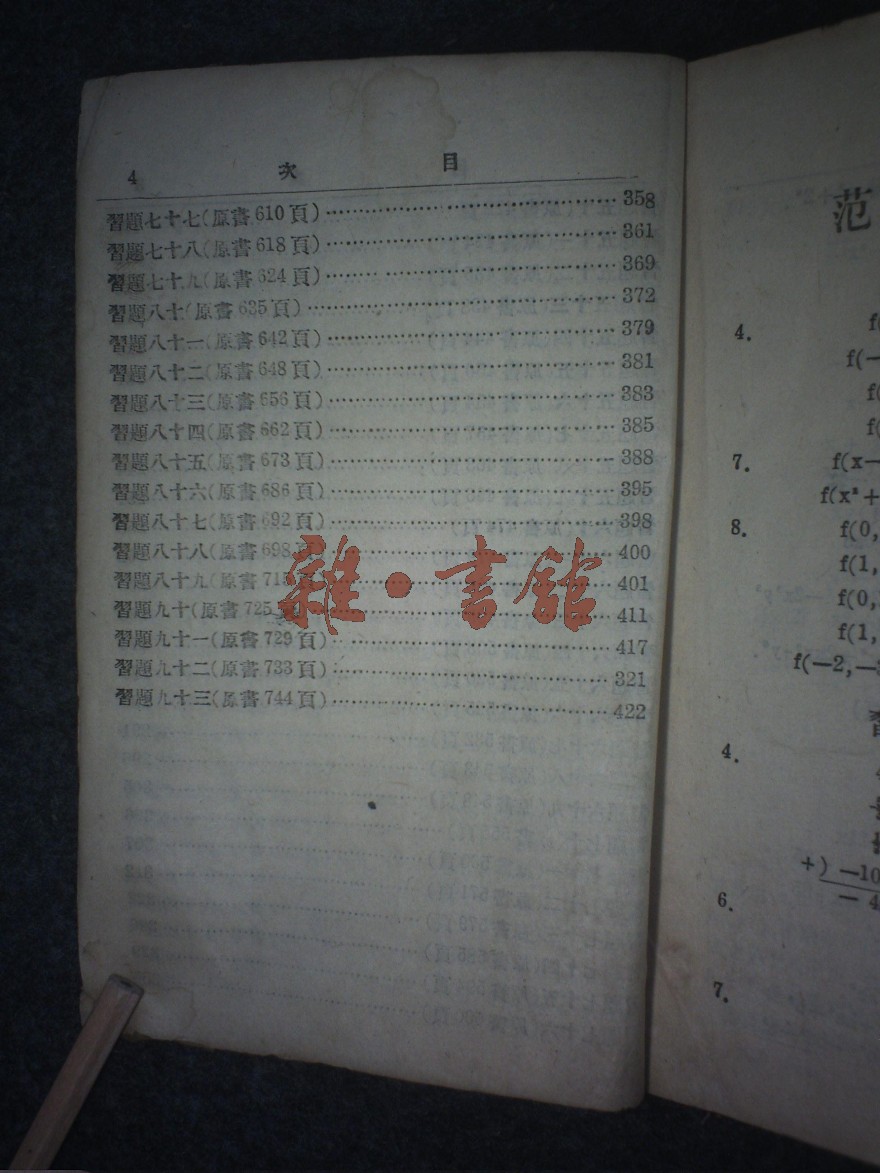 4 次 目
習題七十七(原書610頁)……358
習題七十八(原書618頁)……361
習題七十九(原書624頁)……369
習題八十(原書635頁)……372
習題八十一(原書642頁)……379
習題八十二(原書648頁)……381
習題八十三(原書656頁)……383
習題八十四(原書662頁)……385
習題八十五(原書673頁)……388
習題八十六(原書686頁)……395
習題八十七(原書692頁)……398
習題八十八(原書698頁)……400
習題八十九(原書715頁)……401
習題九十(原書725頁)……411
習題九十一(原書729頁)……417
習題九十二(原書733頁)……321
習題九十三(原書744頁)……422
雜·書館
范
4.
f(
f(—
f(
f(
7. f(x—
f(x²+
8. f(0,
f(1,
f(0,
f(1,
f(—2,—3
4.
+) —10
— 4
6.
7.